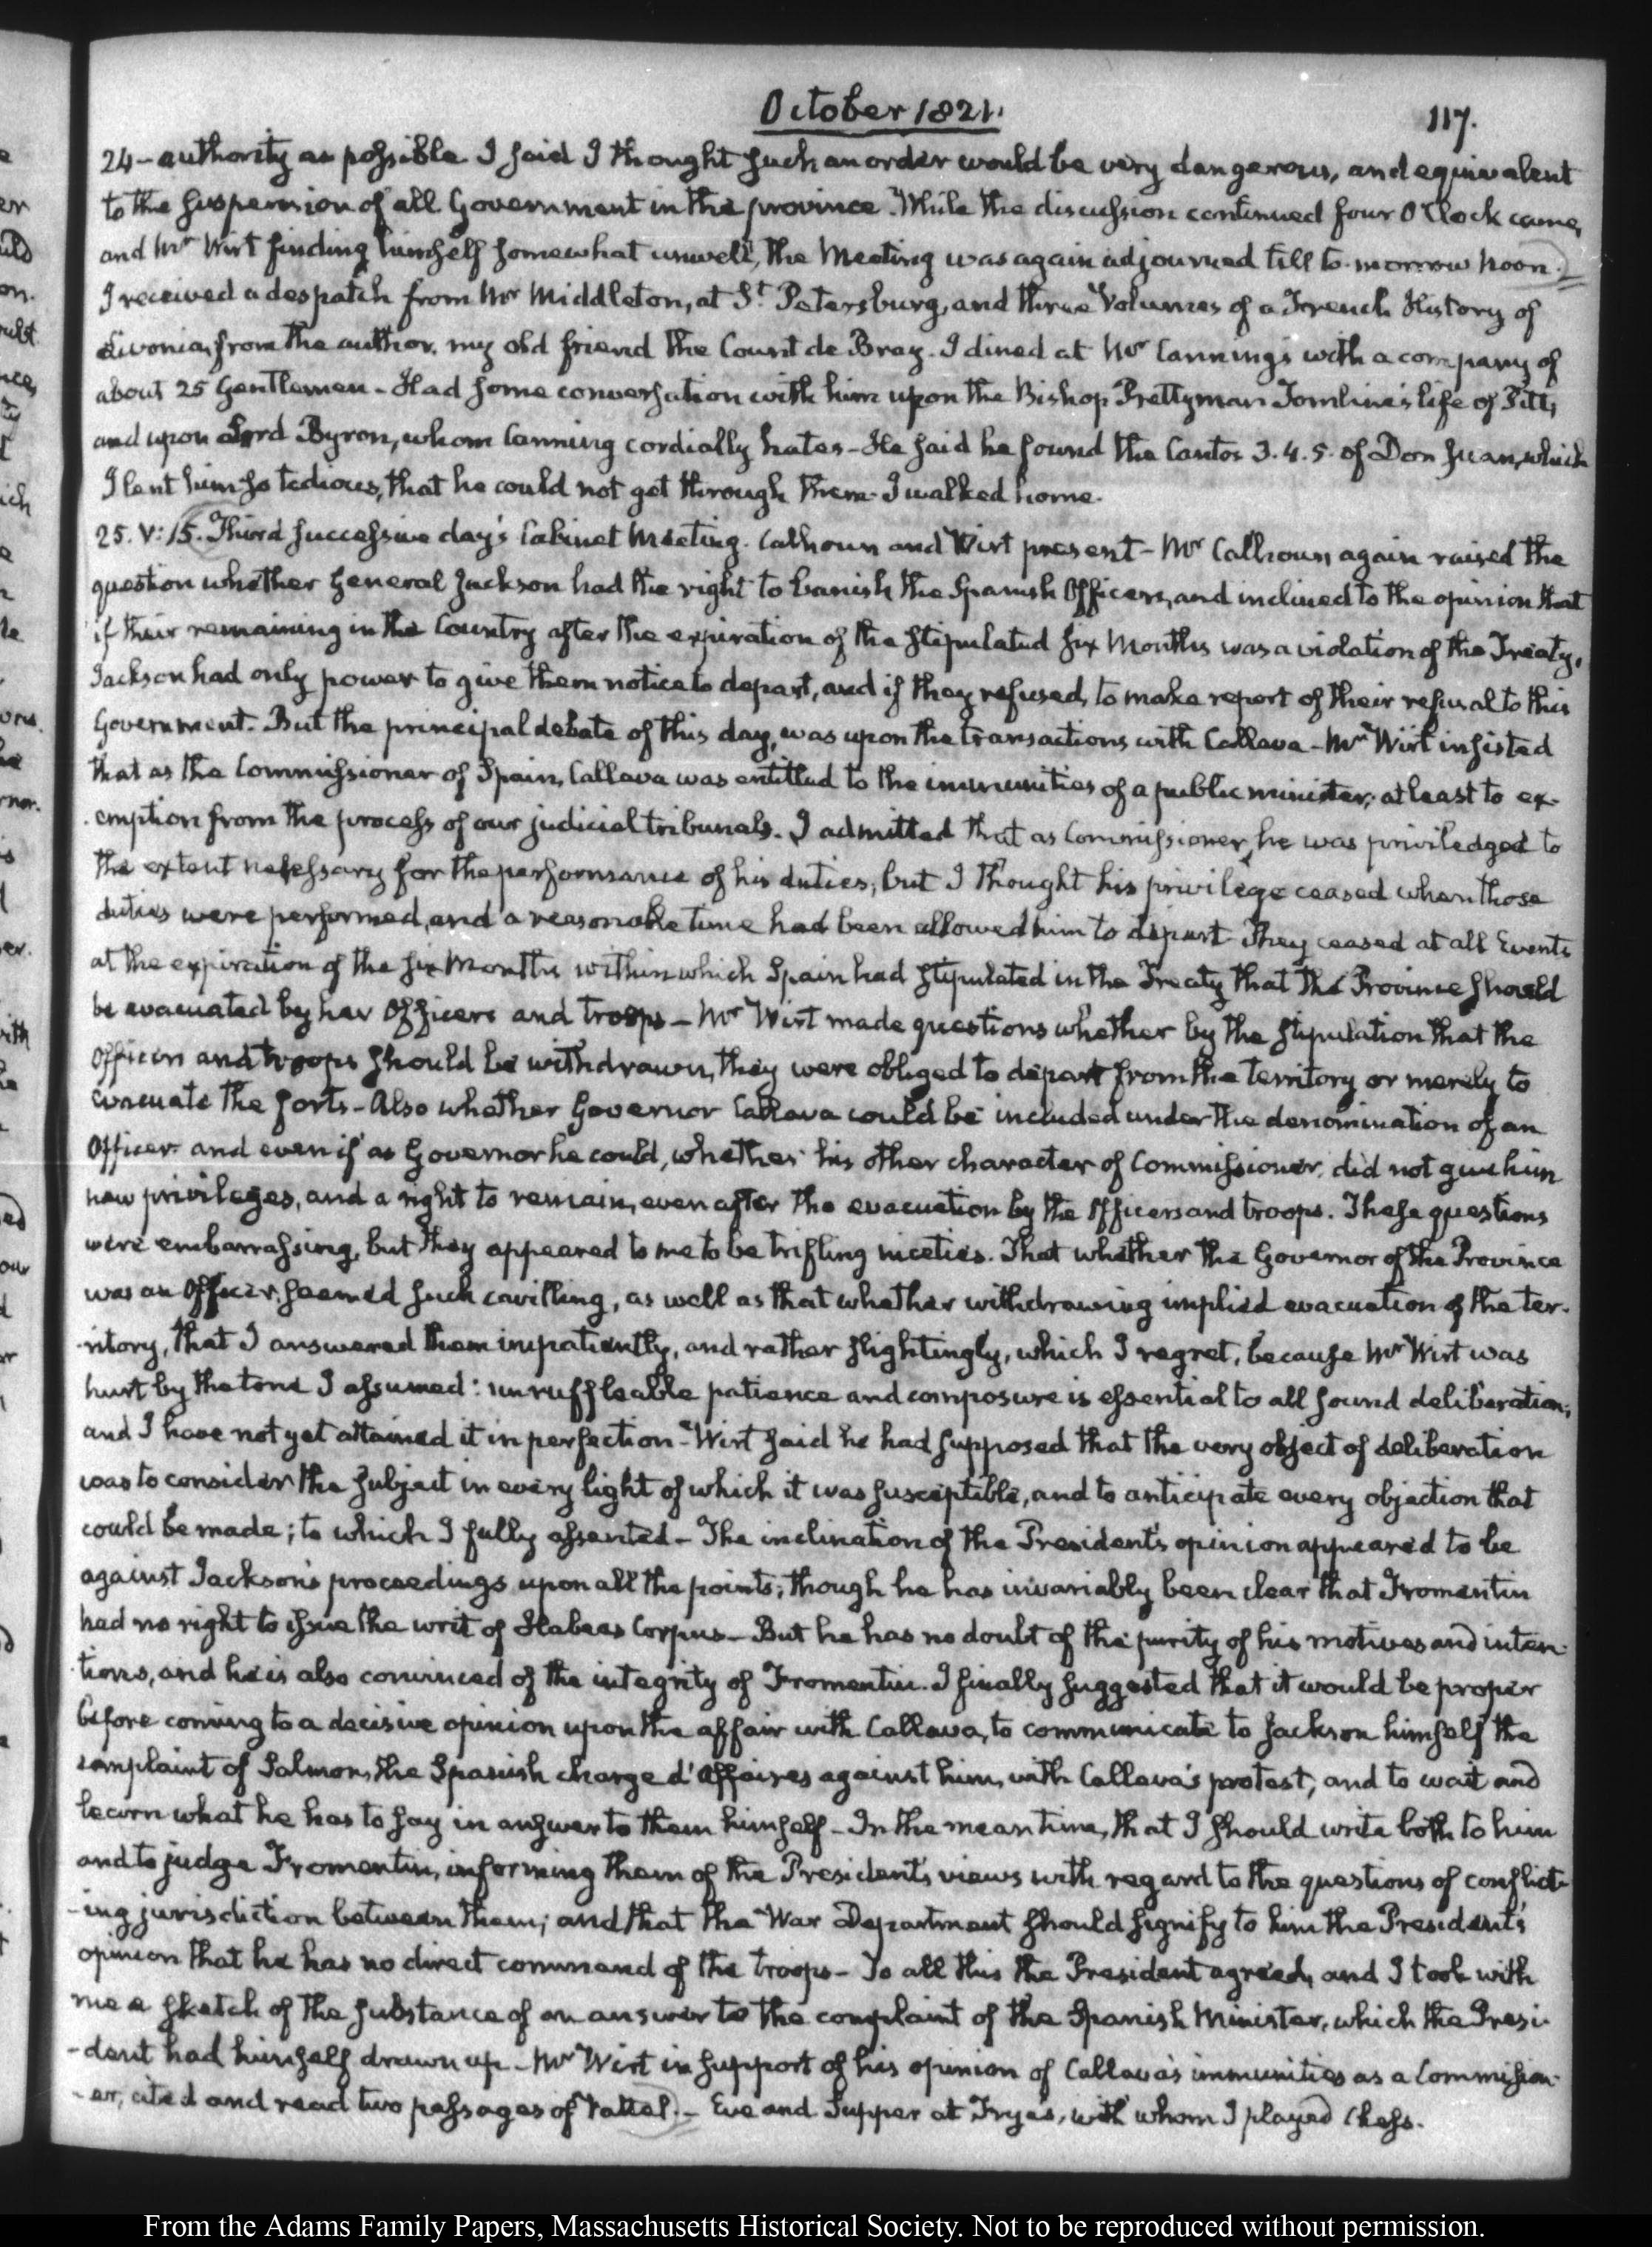 October 1821.
117.
24 - authority as possible. I said I thought such an order would be very dangerous, and equivalent
to the suspension of all Government in the province. While the discussion continued four O'Clock came,
and Mr Wirt finding himself somewhat unwell, the Meeting was again adjourned till to-morrow Noon.
I received a despatch from Mr Middleton, at St. Petersburg, and three Volumes of a French History of
Livonia, from the author, my old friend the Count de Bray. I dined at Mr Canning's with a company of
about 25 Gentlemen - Had some conversation with him upon the Bishop Prettyman Tomline's life of Pitt,
and upon Lord Byron, whom Canning cordially hates - He said he found the Cantos 3. 4. 5. of Don Juan, which
I lent him so tedious, that he could not get through them. I walked home.
25. V: 15. Third successive day's Cabinet Meeting. Calhoun and Wirt present - Mr Calhoun, again raised the
question whether General Jackson had the right to banish the Spanish Officers, and inclined to the opinion that
if their remaining in the Country after the expiration of the stipulated six Months was a violation of the Treaty,
Jackson had only power to give them notice to depart, and if they refused, to make report of their refusal to this
Government. But the principal debate of this day, was upon the transactions with Callava - Mr Wirt insisted
that as the Commissioner of Spain, Callava was entitled to the immunities of a public minister; at least to ex-
-emption from the process of our judicial tribunals. I admitted that as Commissioner, he was priviledged to
the extent necessary for the performance of his duties, but I thought his privilege ceased when those
duties were performed, and a reasonable time had been allowed him to depart. They ceased at all Events
at the expiration of the six Months within which Spain had stipulated in the Treaty that the Province should
be evacuated by her Officers and troops - Mr Wirt made questions whether by the stipulation that the
Officers and troops should be withdrawn, they were obliged to depart from the territory or merely to
evacuate the forts - Also whether Governor Callava could be included under the denomination of an
Officer and even if as Governor he could, whether his other character of Commissioner, did not give him
new privileges, and a right to remain, even after the evacuation by the Officers and troops. These questions
were embarrassing, but they appeared to me to be trifling niceties. That whether the Governor of the Province
was an Officer, seemed such cavilling, as well as that whether withdrawing implied evacuation of the ter-
-ritory, that I answered them impatiently, and rather slightingly, which I regret, because Mr Wirt was
hurt by the tone I assumed: unruffleable patience and composure is essential to all sound deliberation;
and I have not yet attained it in perfection - Wirt said he had supposed that the very object of deliberation
was to consider the subject in every light of which it was susceptible, and to anticipate every objection that
could be made; to which I fully assented - The inclination of the President's opinion appeared to be
against Jackson's proceedings upon all the points; though he has invariably been clear that Fromentin
had no right to issue the writ of Habeas Corpus - But he has no doubt of the purity of his motives and inten-
-tions, and he is also convinced of the integrity of Fromentin. I finally suggested that it would be proper
before coming to a decisive opinion upon the affair with Callava, to communicate to Jackson himself the
complaint of Salmon, the Spanish charge d'Affaires against him, with Callava's protest, and to wait and
learn what he has to say in answer to them himself - In the mean time, that I should write both to him
and to judge Fromentin, informing them of the President's views with regard to the questions of conflict-
-ing jurisdiction between them; and that the War Department should signify to him the President's
opinion that he has no direct command of the troops - To all this the President agreed, and I took with
me a sketch of the substance of an answer to the complaint of the Spanish Minister, which the Presi-
-dent had himself drawn up - Mr Wirt in support of his opinion of Callava's immunities as a Commission-
-er, cited and read two passages of Vattel. - Eve and Supper at Fryes, with whom I played Chess.
From the Adams Family Papers, Massachusetts Historical Society. Not to be reproduced without permission.